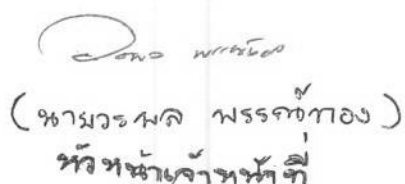 (นายวรพล พรรณ์ทอง)
หัวหน้าเจ้าหน้าที่